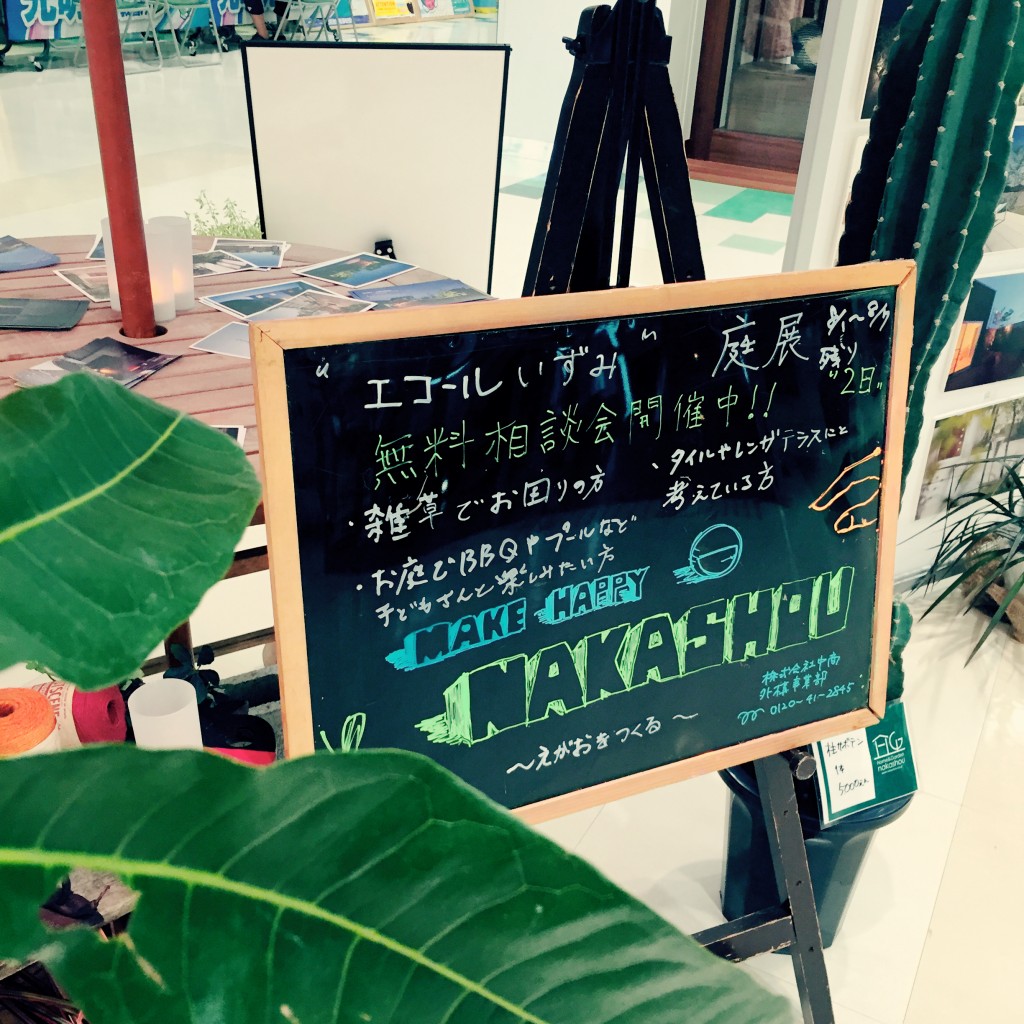 "エコールいずみ" 庭展
8/1〜8/3
残り
"2日"
無料相談会開催中!!
・雑草でお困りの方
・タイルやレンガテラスにと
考えている方
・お庭でBBQやプールなど
子どもさんと楽しみたい方
MAKE HAPPY
NAKASHOU
〜えがおをつくる〜
株式会社中商
外構事業部
0120-41-2845
柱サボテン
1本
HG
Home&Garden
nakashou